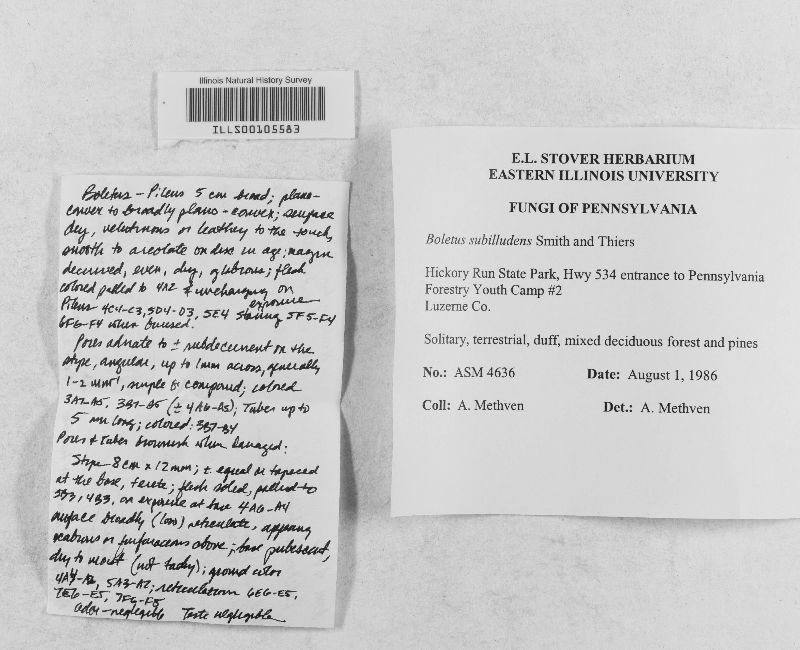 Illinois Natural History Survey
ILLS00105583
Boletus - Pileus 5 cm broad; plano-
convex to broadly plano-convex; surface
dry, velutinous or leathery to the touch,
smooth to areolate on disc in age; margin
decurved, even, dry, glabrous; flesh
colored pallid to 4A2 & unchanging on
exposure
Pileus 4C4-C3, 5D4-D3, 5E4 staining 5F5-F4
6F6-F4 when bruised.
Pores adnate to ± subdecurrent on the
stipe, angular, up to 1mm across, generally
1-2 mm, simple & compound; colored
3A7-A5, 3B7-B5 (± 4A6-A5); Tubes up to
5 mm long; colored: 3B7-B4
Pores & tubes brownish when damaged:
Stipe - 8cm x 12mm; ± equal or tapered
at the base, terete; flesh solid, pallid to
3B3, 4B3, on exposure at base 4A6-A4
surface broadly (loss) reticulate, appearing
scabrous or furfuraceous above; base pubescent,
dry to moist (not tacky); ground color
4A4-A2, 5A3-A2; reticulation 6E6-E5,
7E6-E5, 7F6-F5
Odor - negligible Taste negligible
E.L. STOVER HERBARIUM
EASTERN ILLINOIS UNIVERSITY
FUNGI OF PENNSYLVANIA
Boletus subilludens Smith and Thiers
Hickory Run State Park, Hwy 534 entrance to Pennsylvania
Forestry Youth Camp #2
Luzerne Co.
Solitary, terrestrial, duff, mixed deciduous forest and pines
No.: ASM 4636 Date: August 1, 1986
Coll: A. Methven Det.: A. Methven